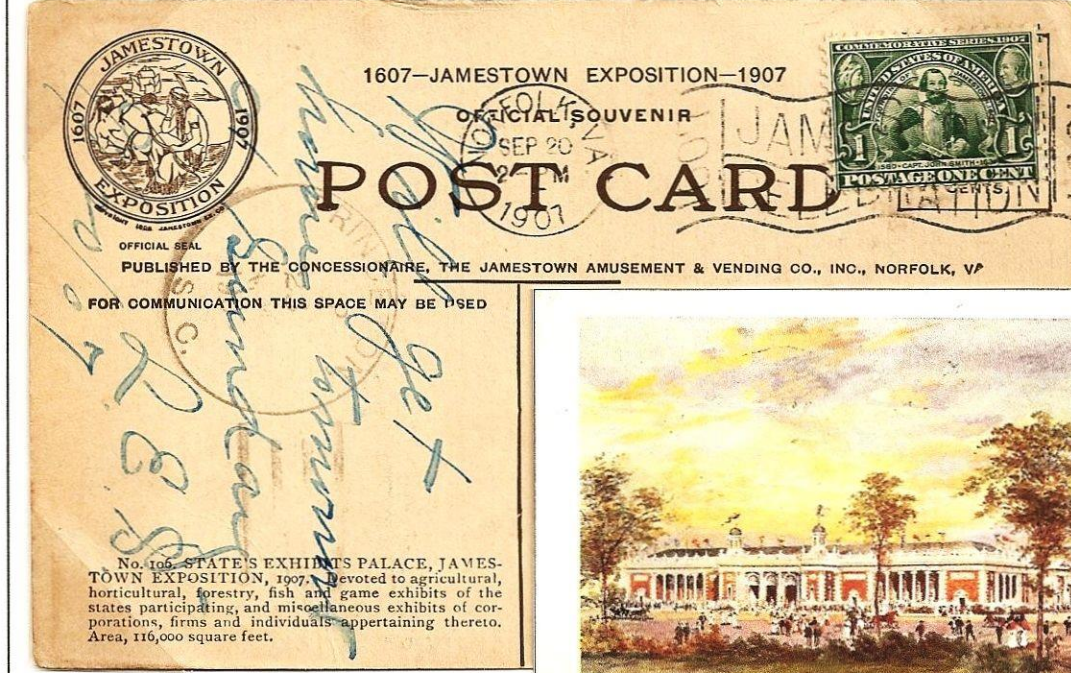 JAMESTOWN
1607 1907
EXPOSITION
COPYRIGHT 1906 JAMESTOWN EX. CO.
OFFICIAL SEAL
1607—JAMESTOWN EXPOSITION—1907
OFFICIAL SOUVENIR
POST CARD
NORFOLK, VA
SEP 20
2- M
1907
JAM
CELEBRATION
COMMEMORATIVE SERIES 1907
UNITED STATES OF AMERICA
1580 · CAPT. JOHN SMITH · 16
1 1
POSTAGE ONE CENT
PUBLISHED BY THE CONCESSIONAIRE, THE JAMESTOWN AMUSEMENT & VENDING CO., INC., NORFOLK, VA
FOR COMMUNICATION THIS SPACE MAY BE USED
S.C.
Will get
home tomorrow
Sunday
R E S
No. 106. STATE'S EXHIBITS PALACE, JAMES-
TOWN EXPOSITION, 1907. Devoted to agricultural,
horticultural, forestry, fish and game exhibits of the
states participating, and miscellaneous exhibits of cor-
porations, firms and individuals appertaining thereto.
Area, 116,000 square feet.